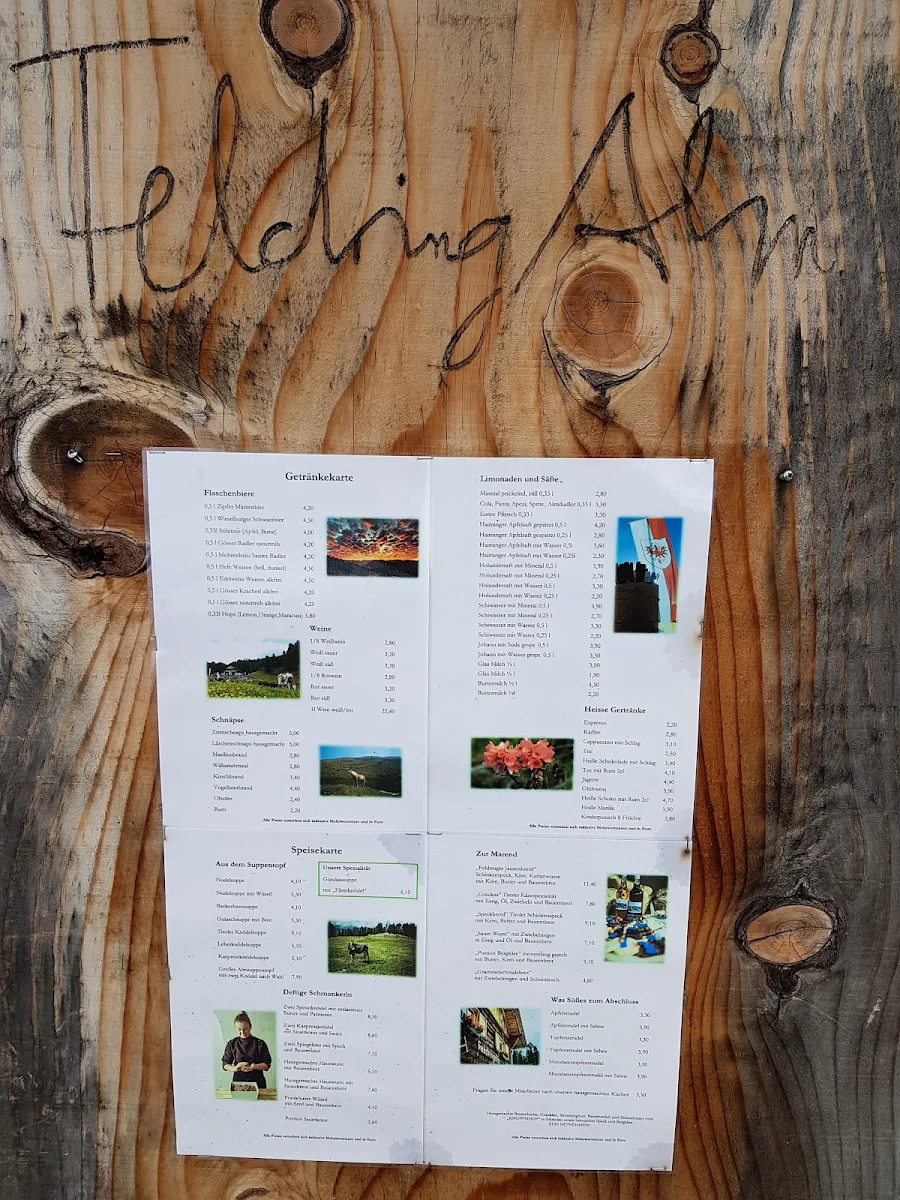 Felding Alm
Getränkekarte
Flaschenbiere
0,5 l Zipfer Märzenbier 4,20
0,5 l Wieselburger Schwarzbier 4,50
0,33l Stibitzer (Apfel, Birne) 4,00
0,5 l Gösser Radler naturtrüb 4,20
0,5 l Mohrenbräu Saurer Radler 4,20
0,5 l Hefe Weizen (hell, dunkel) 4,50
0,5 l Edelweiss Weizen alkfrei 4,50
0,5 l Gösser Kracherl alkfrei 4,20
0,5 l Gösser naturtrüb alkfrei 4,20
0,33l Hups (Lemon,Orange,Maracuja) 3,80
Weine
1/8 Weißwein 2,80
Weiß sauer 3,20
Weiß süß 3,30
1/8 Rotwein 2,80
Rot sauer 3,20
Rot süß 3,30
1l Wein weiß/rot 22,40
Schnäpse
Zirmschnaps hausgemacht 3,00
Lärchenschnaps hausgemacht 3,00
Marillenbrand 2,80
Williamsbrand 2,80
Kirschbrand 3,40
Vogelbeerbrand 4,40
Obstler 2,40
Rum 2,20
Alle Preise verstehen sich inklusive Mehrwertsteuer und in Euro
Limonaden und Säfte
Mineral prickelnd, still 0,33 l 2,80
Cola, Fanta, Spezi, Sprite, Almdudler 0,33 l 3,30
Eistee Pfirsich 0,33 l 3,30
Haiminger Apfelsaft gespritzt 0,5 l 4,20
Haiminger Apfelsaft gespritzt 0,25 l 2,80
Haiminger Apfelsaft mit Wasser 0,5l 3,60
Haiminger Apfelsaft mit Wasser 0,25l 2,30
Holundersaft mit Mineral 0,5 l 3,90
Holundersaft mit Mineral 0,25 l 2,70
Holundersaft mit Wasser 0,5 l 3,30
Holundersaft mit Wasser 0,25 l 2,20
Schiwasser mit Mineral 0,5 l 3,90
Schiwasser mit Mineral 0,25 l 2,70
Schiwasser mit Wasser 0,5 l 3,30
Schiwasser mit Wasser 0,25 l 2,20
Johann mit Soda gespr. 0,5 l 3,90
Johann mit Wasser gespr. 0,5 l 3,30
Glas Milch ½ l 3,00
Glas Milch ¼ l 1,90
Buttermilch ½ l 3,50
Buttermilch ¼l 2,20
Heisse Gertränke
Espresso 2,20
Kaffee 2,80
Cappuccino mit Schlag 3,10
Tee 2,50
Heiße Schokolade mit Schlag 3,40
Tee mit Rum 2cl 4,10
Jägertee 4,40
Glühwein 3,90
Heiße Schoko mit Rum 2cl 4,70
Heiße Marille 3,90
Kinderpunsch 8 Früchte 2,80
Alle Preise verstehen sich inklusive Mehrwertsteuer und in Euro
Speisekarte
Aus dem Suppentopf
Nudelsuppe 4,10
Nudelsuppe mit Würstl 5,30
Backerbsensuppe 4,10
Gulaschsuppe mit Brot 5,30
Tiroler Knödelsuppe 5,10
Leberknödelsuppe 5,10
Kaspressknödelsuppe 5,10
Großer Almsuppentopf
mit zwei Knödel nach Wahl 7,90
Unsere Spezialität
Graukassuppe
mit „Fleischknödel“ 6,10
Deftige Schmankerln
Zwei Spinatknödel mit zerlassener
Butter und Parmesan 8,50
Zwei Kaspressknödel
mit Sauerkraut und Sauce 8,60
Zwei Spiegeleier mit Speck
und Bauernbrot 7,10
Hausgemachte Hauswurst
mit Bauernbrot 5,10
Hausgemachte Hauswurst mit
Sauerkraut und Bauernbrot 7,60
Frankfurter Würstl
mit Senf und Bauernbrot 4,10
Portion Sauerkraut 2,60
Alle Preise verstehen sich inklusive Mehrwertsteuer und in Euro
Zur Marend
„Feldinger Jausenbrettl“
Schinkenspeck, Käse, Kaminwurze
mit Kren, Butter und Bauernbrot 11,40
„Graukas“ Tiroler Käsespezialität
mit Essig, Öl, Zwiebeln und Bauernbrot 7,80
„Speckbrettl“ Tiroler Schinkenspeck
mit Kren, Butter und Bauernbrot 9,10
„Saure Wurst“ mit Zwiebelringen
in Essig und Öl und Bauernbrot 7,10
„Portion Bergkäse“ monatelang gereift
mit Butter, Kren und Bauernbrot 9,10
„Grammelschmalzbrot“
mit Zwiebelringen und Schnittlauch 4,60
Was Süßes zum Abschluss
Apfelstrudel 3,30
Apfelstrudel mit Sahne 3,90
Topfenstrudel 3,30
Topfenstrudel mit Sahne 3,90
Moosbeertopfenstrudel 3,30
Moosbeertopfenstrudel mit Sahne 3,90
Fragen Sie unsere Mitarbeiter nach unseren hausgemachten Kuchen 3,30
ZUM MITNEHMEN!
Alle Preise verstehen sich inklusive Mehrwertsteuer und in Euro